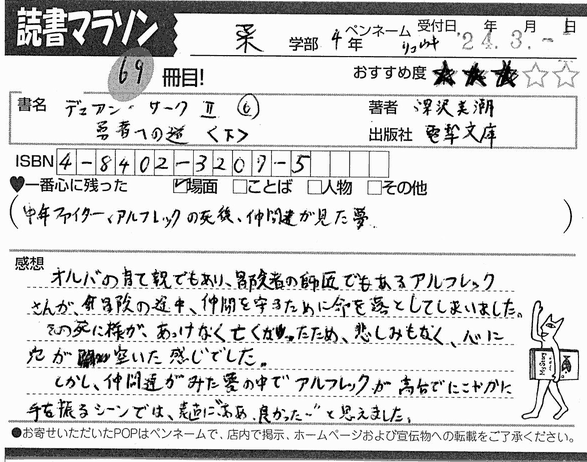 読書マラソン
69 冊目!
学部 4年
ペンネーム リュウキ
受付日 年 月 日
'24.3.-1
おすすめ度 ★★★☆☆
書名 デュアン・サークⅡ⑥
勇者への道〈下〉
著者 深沢美潮
出版社 電撃文庫
ISBN 4-8402-3207-5
♥一番心に残った ☑場面 □ことば □人物 □その他
(中年ファイター、アルフレックの死後、仲間達が見た夢)
感想
オルバの育て親でもあり、冒険者の師匠でもあるアルフレック
さんが、冒険の途中、仲間を守るために命を落としてしまいました。
その死に様が、あっけなく亡くなったため、悲しみもなく、心に
穴が空いた感じでした。
しかし、仲間達がみた夢の中でアルフレックが高台でにこやかに
手を振るシーンでは、素直に"ああ、良かった…"と思えました。
Mystery
●お寄せいただいたPOPはペンネームで、店内で掲示、ホームページおよび宣伝物への転載をご了承ください。